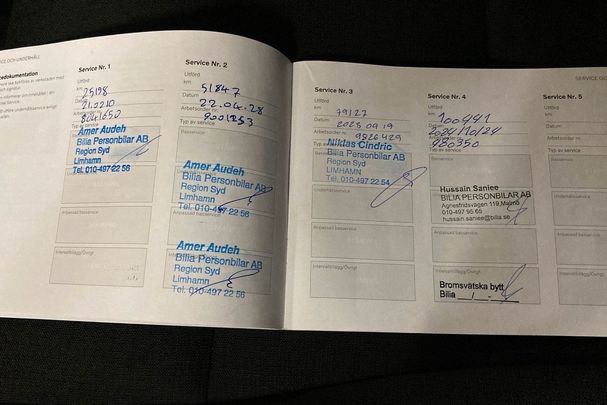 CE OCH UNDERHÅLL
Service Nr. 1
Utförd
km
25198
Datum
21.02.10
8041650
Typ av service
Amer Audeh
Bilia Personbilar AB
Region Syd
Limhamn
Tel. 010-497 22 56
Anpassad basservice
Intervalltillägg/Övrigt
Service Nr. 2
Utförd
km
51847
Datum
22.04.28
Arbetsorder nr.
9001253
Typ av service
Basservice
Amer Audeh
Bilia Personbilar AB
Region Syd
Limhamn
Tel. 010-497 22 56
Anpassad basservice
Amer Audeh
Bilia Personbilar AB
Region Syd
Limhamn
Tel. 010-497 22 56
Service Nr. 3
Utförd
km
79127
Datum
2023 09 19
Arbetsorder nr.
9926429
Niklas Cindric
Bilia Personbilar AB
Region Syd
LIMHAMN
Tel. 010-497 22 54
Underhållsservice
Anpassad basservice
Intervalltillägg/Övrigt
Service Nr. 4
Utförd
km
100441
2024/10/24
980350
Typ av service
Basservice
Hussain Saniee
BILIA PERSONBILAR AB
Agnesfridsvägen 119, Malmö
010-497 95 65
hussain.saniee@bilia.se
Anpassad basservice
Intervalltillägg/Övrigt
Bromsvätska bytt
Bilia
SERVICE OC
Service Nr. 5
Utförd
km
Datum
Arbetsorder nr.
Typ av service
Basservice
Underhållsservice
Anpassad basservice
Intervalltillägg/Övrigt